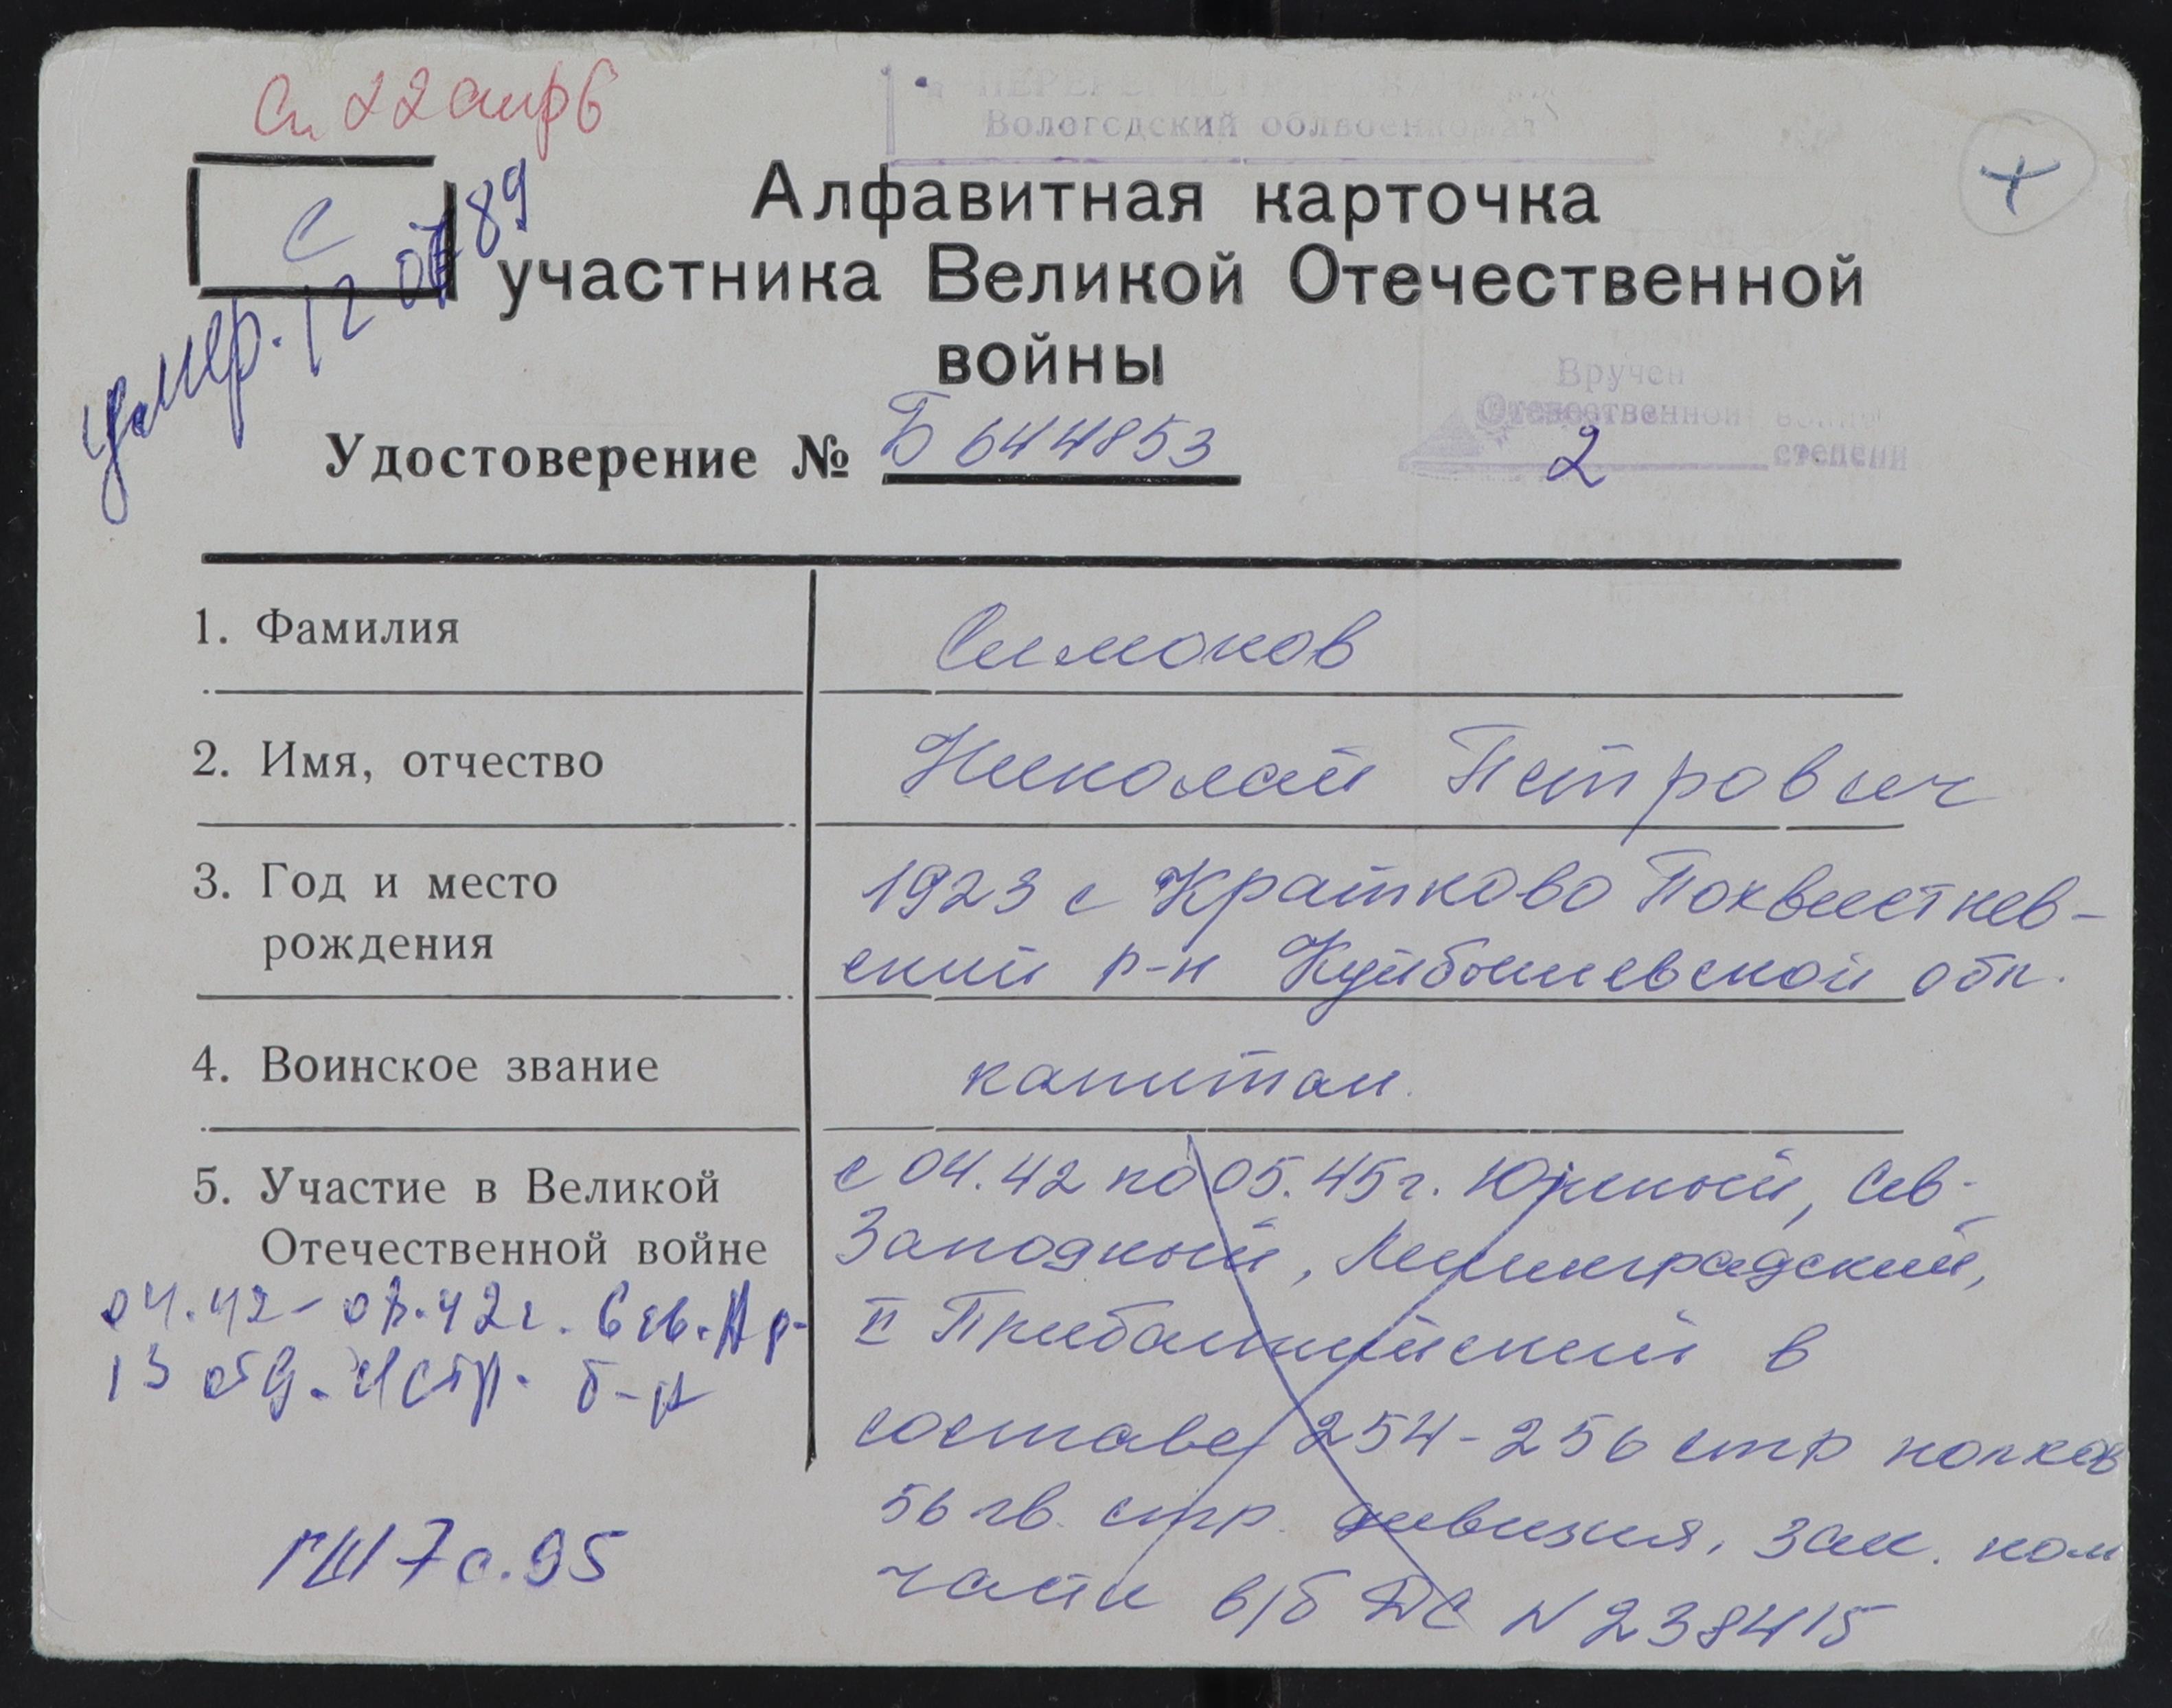 Сп 22 стр 6
Вологодский облвоенкомат
С
умер. 12 07 89
Алфавитная карточка
участника Великой Отечественной
войны
Вручен
Отечественной войны
2 степени
Удостоверение № Б 644853
1. Фамилия Симонов
2. Имя, отчество Николай Петрович
3. Год и место рождения
1923 с Кратково Похвистнев-
ский р-н Куйбышевской обл.
4. Воинское звание капитан.
5. Участие в Великой
Отечественной войне
с 04.42 по 05.45г. Южный, Сев-
Западный, Ленинградский,
II Прибалтийский в
составе 254-256 стр полков
56 гв. стр. дивизия, зам. ком
части в/б ДС N 238415
04.42- 07.42г. Сев.
13 отд. истр. б-н
ГШ 7 с. 95